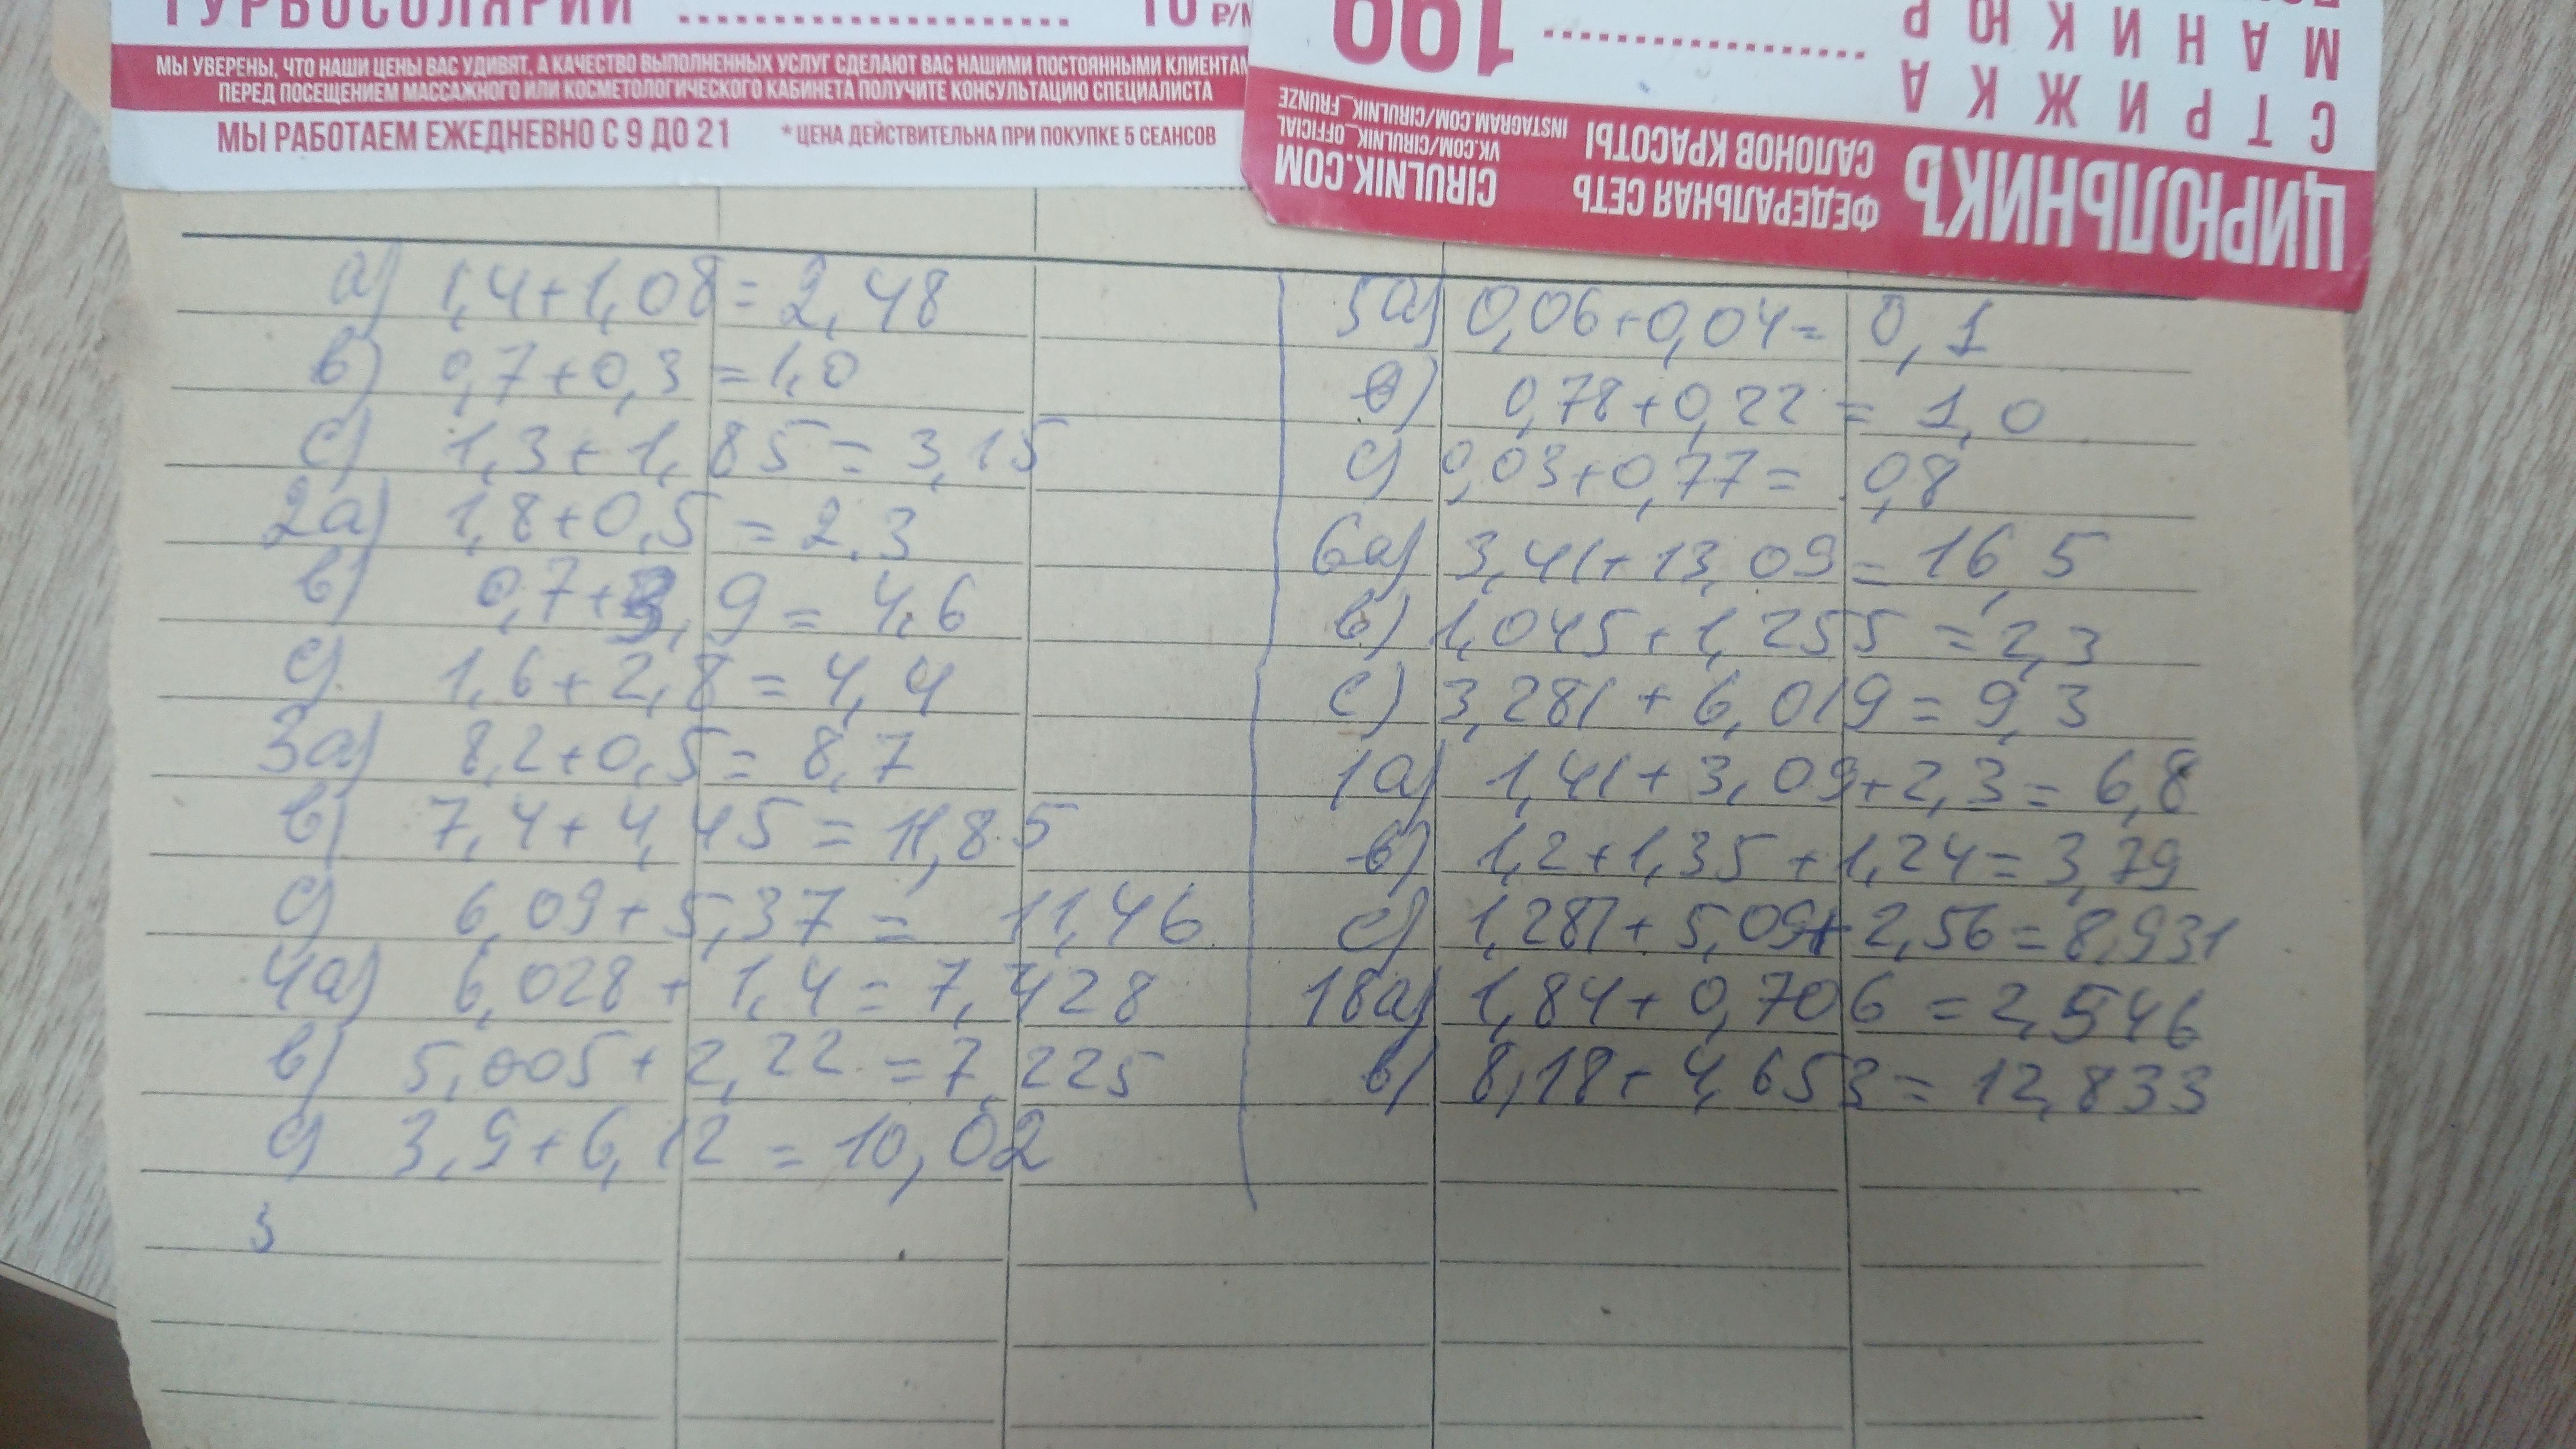 ТУРБОСОЛЯРИЙ ........................ 10 ₽/М
МЫ УВЕРЕНЫ, ЧТО НАШИ ЦЕНЫ ВАС УДИВЯТ, А КАЧЕСТВО ВЫПОЛНЕННЫХ УСЛУГ СДЕЛАЮТ ВАС НАШИМИ ПОСТОЯННЫМИ КЛИЕНТАМ
ПЕРЕД ПОСЕЩЕНИЕМ МАССАЖНОГО ИЛИ КОСМЕТОЛОГИЧЕСКОГО КАБИНЕТА ПОЛУЧИТЕ КОНСУЛЬТАЦИЮ СПЕЦИАЛИСТА
МЫ РАБОТАЕМ ЕЖЕДНЕВНО С 9 ДО 21 * ЦЕНА ДЕЙСТВИТЕЛЬНА ПРИ ПОКУПКЕ 5 СЕАНСОВ
ЦИРЮЛЬНИКЪ
ФЕДЕРАЛЬНАЯ СЕТЬ
САЛОНОВ КРАСОТЫ
CIRULNIK.COM
VK.COM/CIRULNIK_OFFICIAL
INSTAGRAM.COM/CIRULNIK_FRUNZE
СТРИЖКА
МАНИКЮР .................... 199
а) 1,4+1,08=2,48
в) 0,7+0,3=1,0
с) 1,3+1,85=3,15
2а) 1,8+0,5=2,3
в) 0,7+3,9=4,6
с) 1,6+2,8=4,4
3а) 8,2+0,5=8,7
в) 7,4+4,45=11,85
с) 6,09+5,37=11,46
4а) 6,028+1,4=7,428
в) 5,005+2,22=7,225
с) 3,9+6,12=10,02
3
5а) 0,06+0,04=0,1
в) 0,78+0,22=1,0
с) 0,03+0,77=0,8
6а) 3,41+13,09=16,5
в) 1,045+1,255=2,3
с) 3,281+6,019=9,3
1а) 1,41+3,09+2,3=6,8
в) 1,2+1,35+1,24=3,79
с) 1,281+5,09+2,56=8,931
18а) 1,84+0,706=2,546
в) 8,18+4,653=12,833